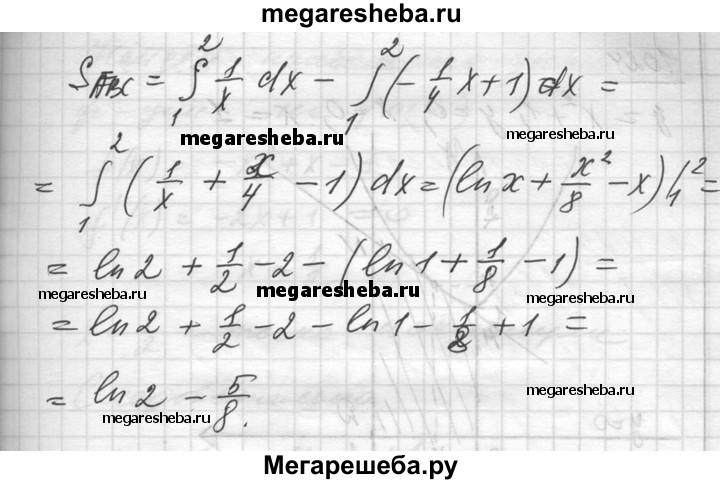 megaresheba.ru
S_ABC = ∫₁² 1/x dx − ∫₁² (−1/4 x + 1) dx =
megaresheba.ru megaresheba.ru
= ∫₁² (1/x + x/4 − 1) dx = (ln x + x²/8 − x) |₁² =
= ln 2 + 1/2 − 2 − (ln 1 + 1/8 − 1) =
megaresheba.ru megaresheba.ru megaresheba.ru
= ln 2 + 1/2 − 2 − ln 1 − 1/8 + 1 =
= ln 2 − 5/8.
megaresheba.ru megaresheba.ru
Мегарешеба.ру